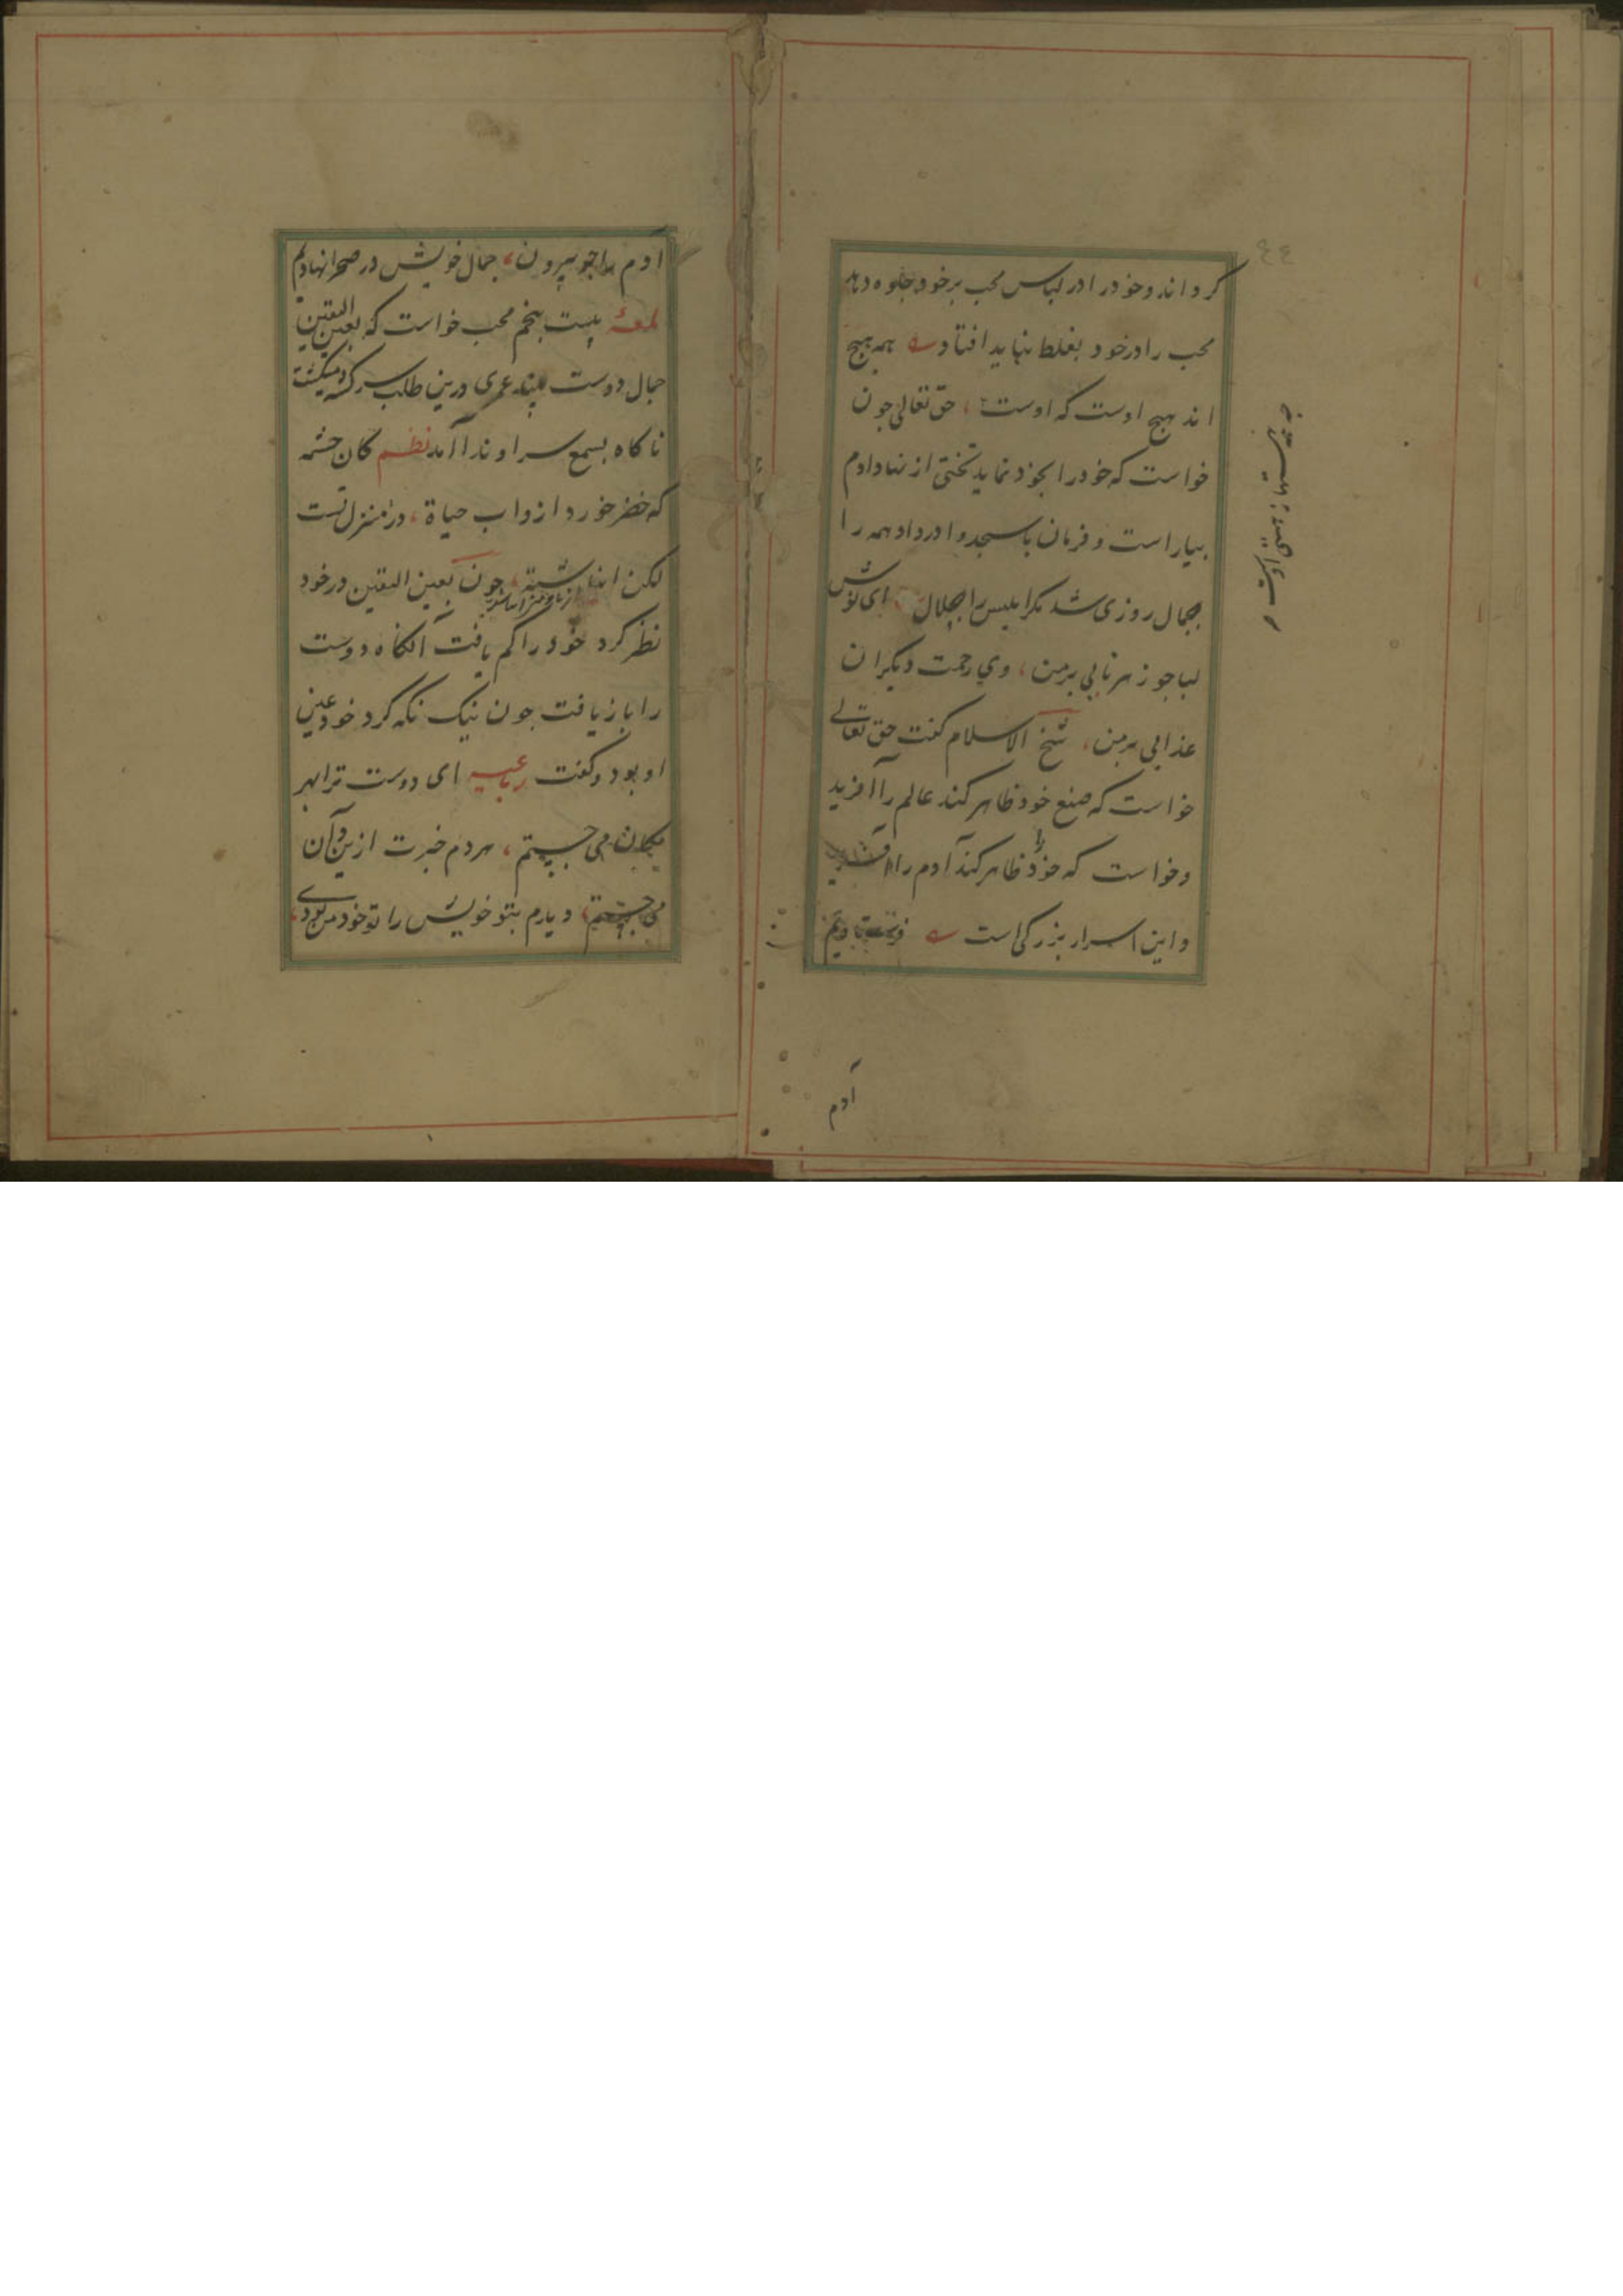 کرداند و خود را در لباس محب برخود جلوه دهد
محب را در خود بغلط نباید افتاد همه هیچ
اند هیچ اوست که اوست حق تعالی جون
خواست که خود را بخود نماید تختی از نهاد ادم
بیاراست و فرمان با سجدوا در داد همه را
جمال روزی شد مکر ابلیس را جلال ای نوش
لبا جو زهر نابی بر من وی رحمت دیکران
عذابی بر من شیخ الاسلام کفت حق تعالی
خواست که صنع خود ظاهر کند عالم را آفرید
وخواست که خود را ظاهر کند آدم را
واین اسرار بزرکی است
آدم
٤٤
ادم را جو بیرون جمال خویش در صحرا نهادیم
لمعهٔ بیست پنجم محب خواست که بعین الیقین
جمال دوست بیند عمری درین طلب سرکشته میکشت
ناکاه بسمع سر او ندا آمد نظم کان جشمه
که خضر خورد ازو اب حیاة در منزل تست
لکن انباشتهٔ جون بعین الیقین در خود
نظر کرد خود را کم یافت آنکاه دوست
را باز یافت جون نیک نکه کرد خود عین
او بود وکفت رباعیه ای دوست ترا بهر
مکان می جستم هر دم خبرت ازین و آن
می جستم دیدم بتو خویش را تو خود من بودی